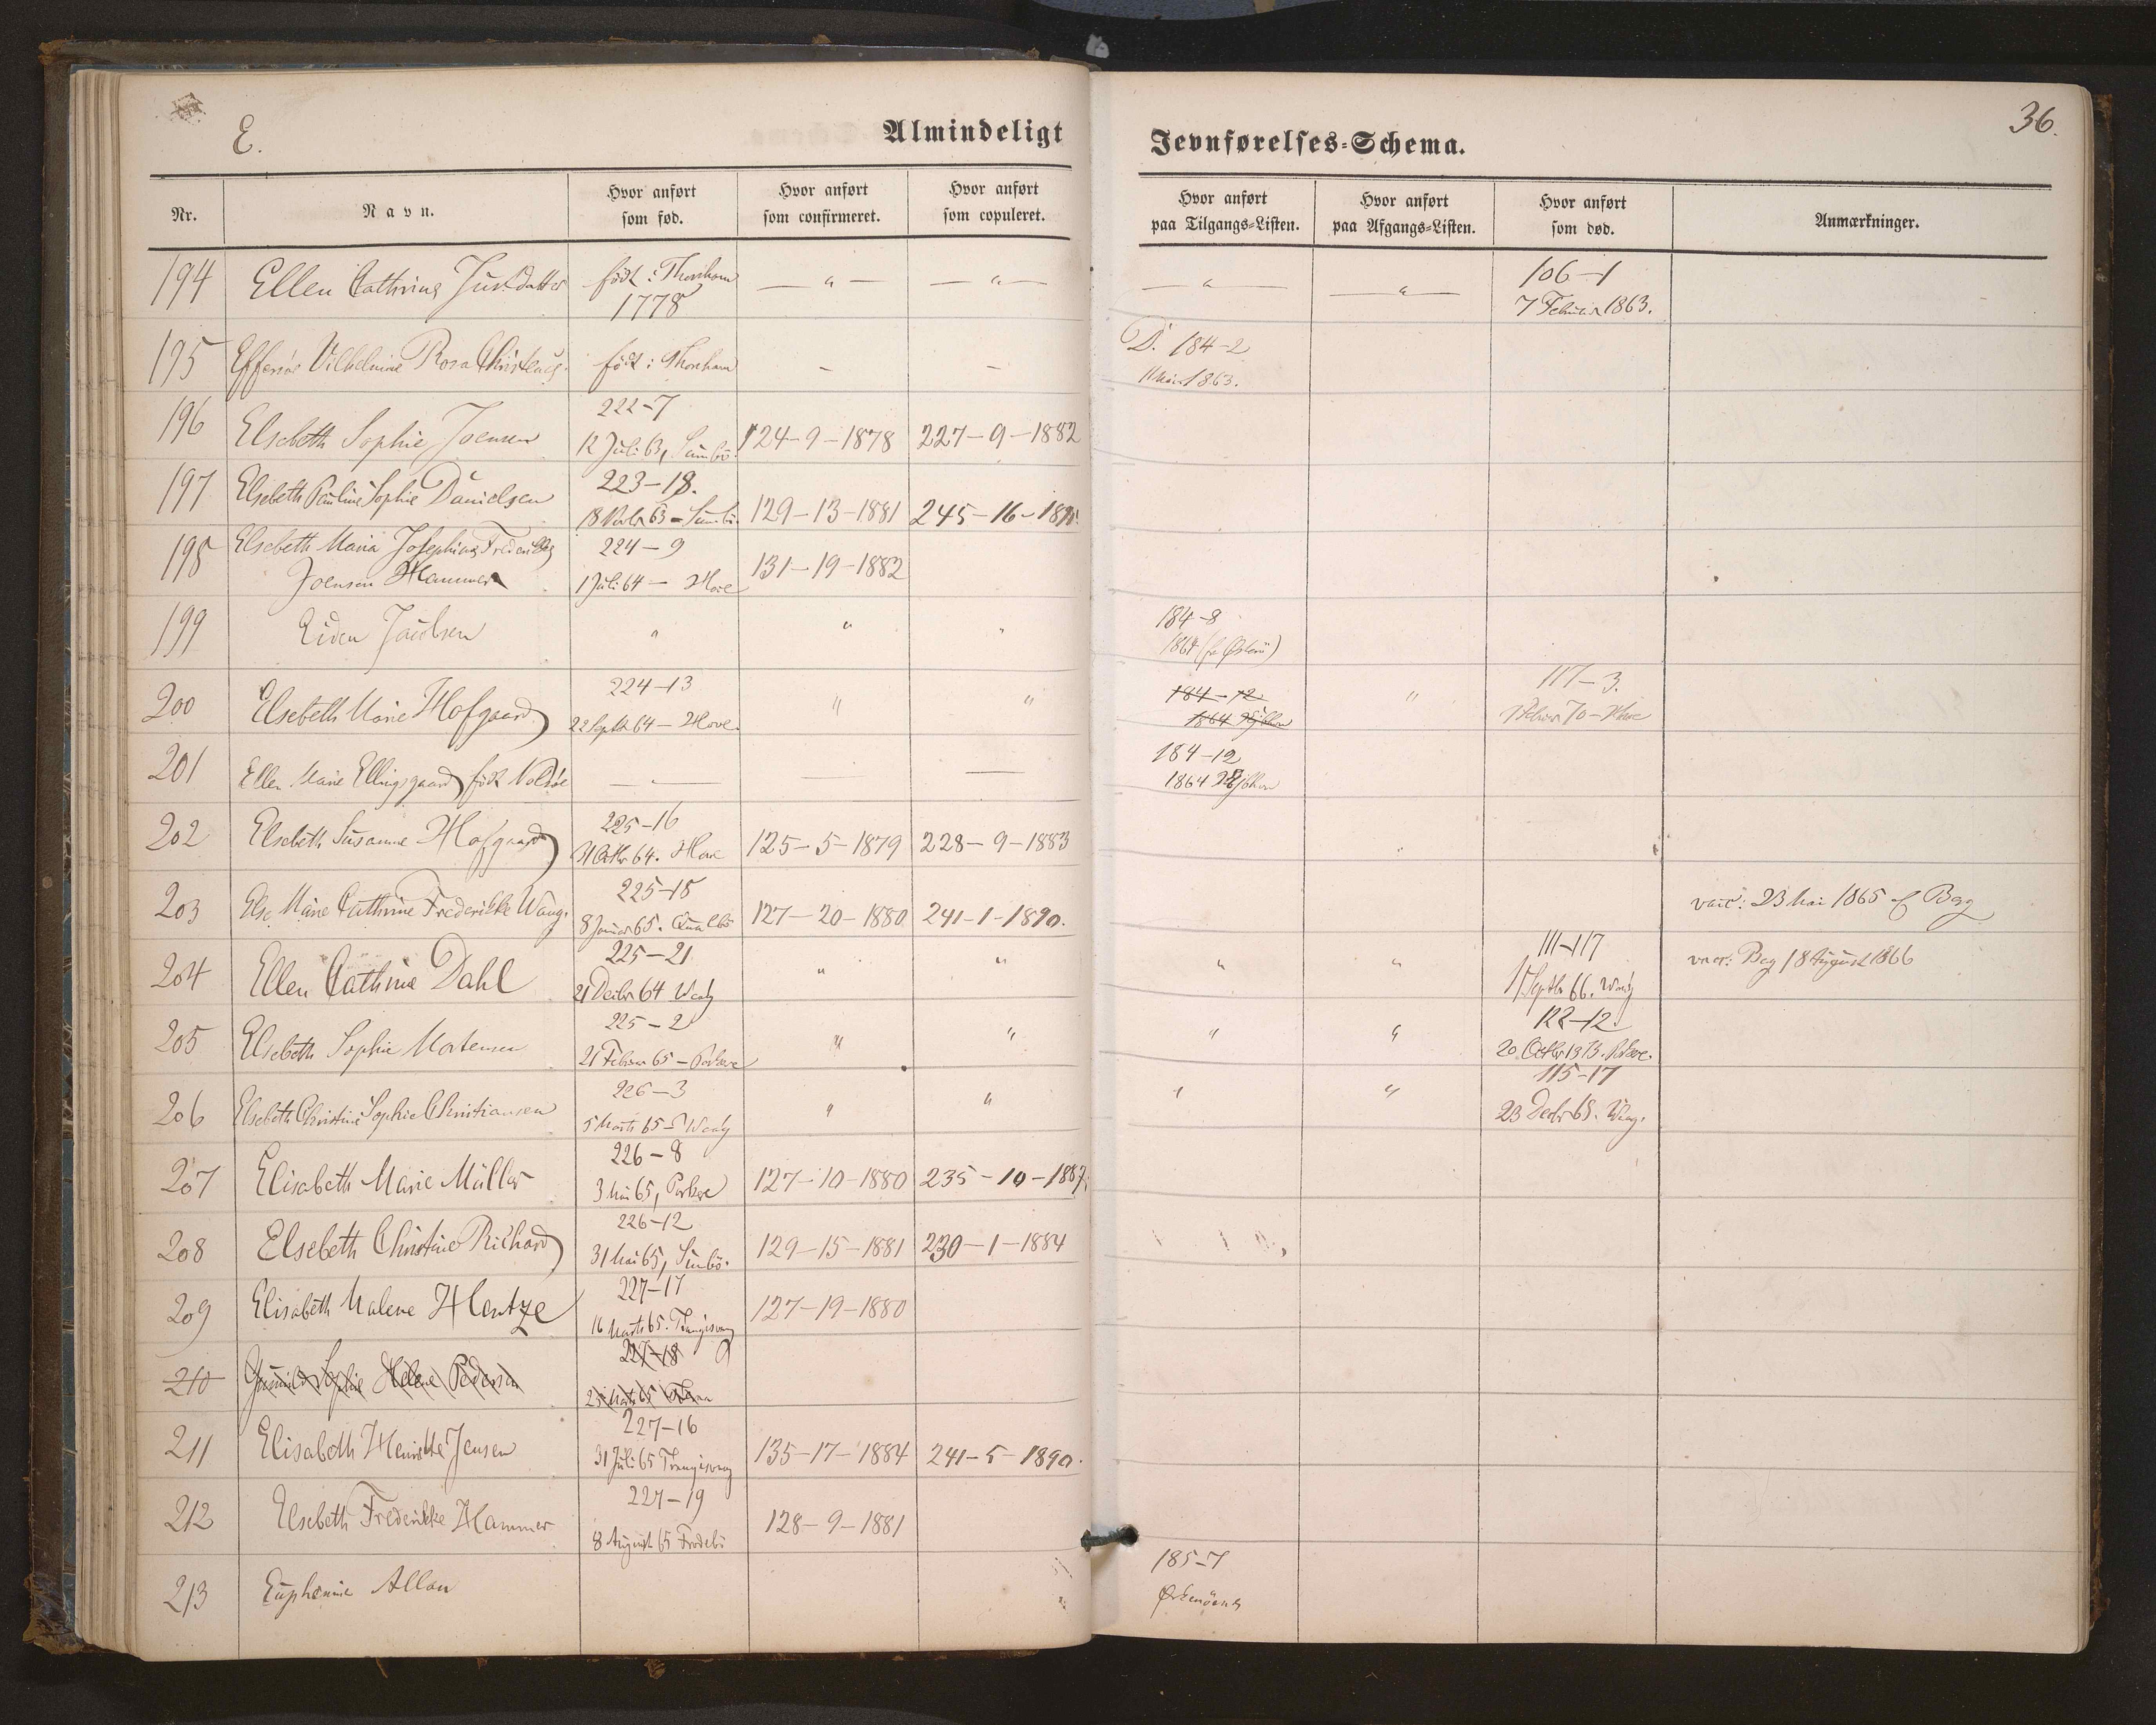 E.
Almindeligt Jevnførelses-Schema.
36.
Nr. Navn. Hvor anført som fød. Hvor anført som confirmeret. Hvor anført som copuleret. Hvor anført paa Tilgangs-Listen. Hvor anført paa Afgangs-Listen. Hvor anført som død. Anmærkninger.
194 Ellen Cathrina født i Thorshavn — " — — " — — " — — " — 106-1
1778 7 Februar 1863.
195 Vilhelmine Rosa født i Thorshavn - - D. 184-2
1863.
196 Elsebeth Sophie Joensen 222-7 124-9-1878 227-9-1882
12 Juli 63, Sumbø.
197 Elsebeth Pauline Sophie Danielsen 223-18. 129-13-1881 245-16-
18 Novbr 63 - Sumbø.
198 Elsebeth Maria Josephine Frederikke 224-9 131-19-1882
Joensen Hammer 1 Juli 64 - Hove
199 Eiden Jacobsen " " " 184-8
1864 (fra Østerø)
200 Elsebeth Marie Hofgaard 224-13 " " 184-12 " 117-3.
22 Septbr 64 - Hove. 1864 Februar 70 - Hove
201 Ellen Marie Ellingsgaard født — — — 184-12
1864
202 Elsebeth Susanne Hofgaard 225-16 125-5-1879 228-9-1883
31 Octbr 64. Hove
203 Else Marie Cathrine Frederikke Waag. 225-18 127-20-1880 241-1-1890. vacc: 23 Mai 1865 af Bag
8 Januar 65. Qualbø
204 Ellen Cathrine Dahl 225-21 " " " " 111-117 vacc. Bag 18 August 1866
21 Decbr 64 Waag Septbr 66. Waag
205 Elsebeth Sophie Mortensen 225-2 " " " " 122-12.
21 Februar 65 - Porkere 20 Octbr 1873. Porkere.
206 Elsebeth Christine Sophie Christiansen 226-3 " " " " 115-17
5 Marts 65 - Waag 23 Decbr 68. Waag.
207 Elisabeth Marie Müller 226-8 127-10-1880 235-10-1887.
3 Mai 65, Porkere
208 Elsebeth Christine Richard 226-12 129-15-1881 230-1-1884
31 Mai 65, Sumbø.
209 Elisabeth Malene Hentze 227-17 127-19-1880
16 Marts 65. Trangisvaag
210 Gunnild Sophie Helene Pedersen 227-18
25 Marts 65
211 Elisabeth Henriette Jensen 227-16 135-17-1884 241-5-1890.
31 Juli 65 Trangisvaag
212 Elsebeth Frederikke Hammer 227-19 128-9-1881
8 August 65 Frodebø
213 Euphemie Allan 185-7
Ørkenøerne